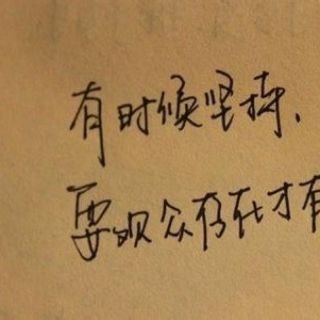 有时候坚持、
要观众存在才有